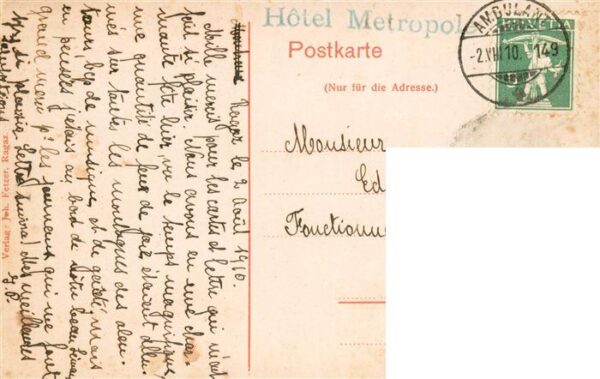 Hôtel Metropol
Postkarte
(Nur für die Adresse.)
AMBULANT
-2.VIII.10. 149
HELVETIA
Monsieur
Ed
Fonctionn
Verlag Joh. Fetzer, Ragaz.
Ragaz le 2 Août 1910.
Mille mercis pour les cartes et lettre qui m'ont
fait si plaisir. Nous avons eu une char-
mante fête hier, vu le temps magnifique,
une quantité de feux de joie étaient allu-
més sur toutes les montagnes des alen-
tours, bcp de musique, et de gaieté, mais
en pensées j'étais au bord de notre beau Léman
grand merci p. les journaux qui me font
si plaisir, lettre suivra! Mes meilleures
salutations